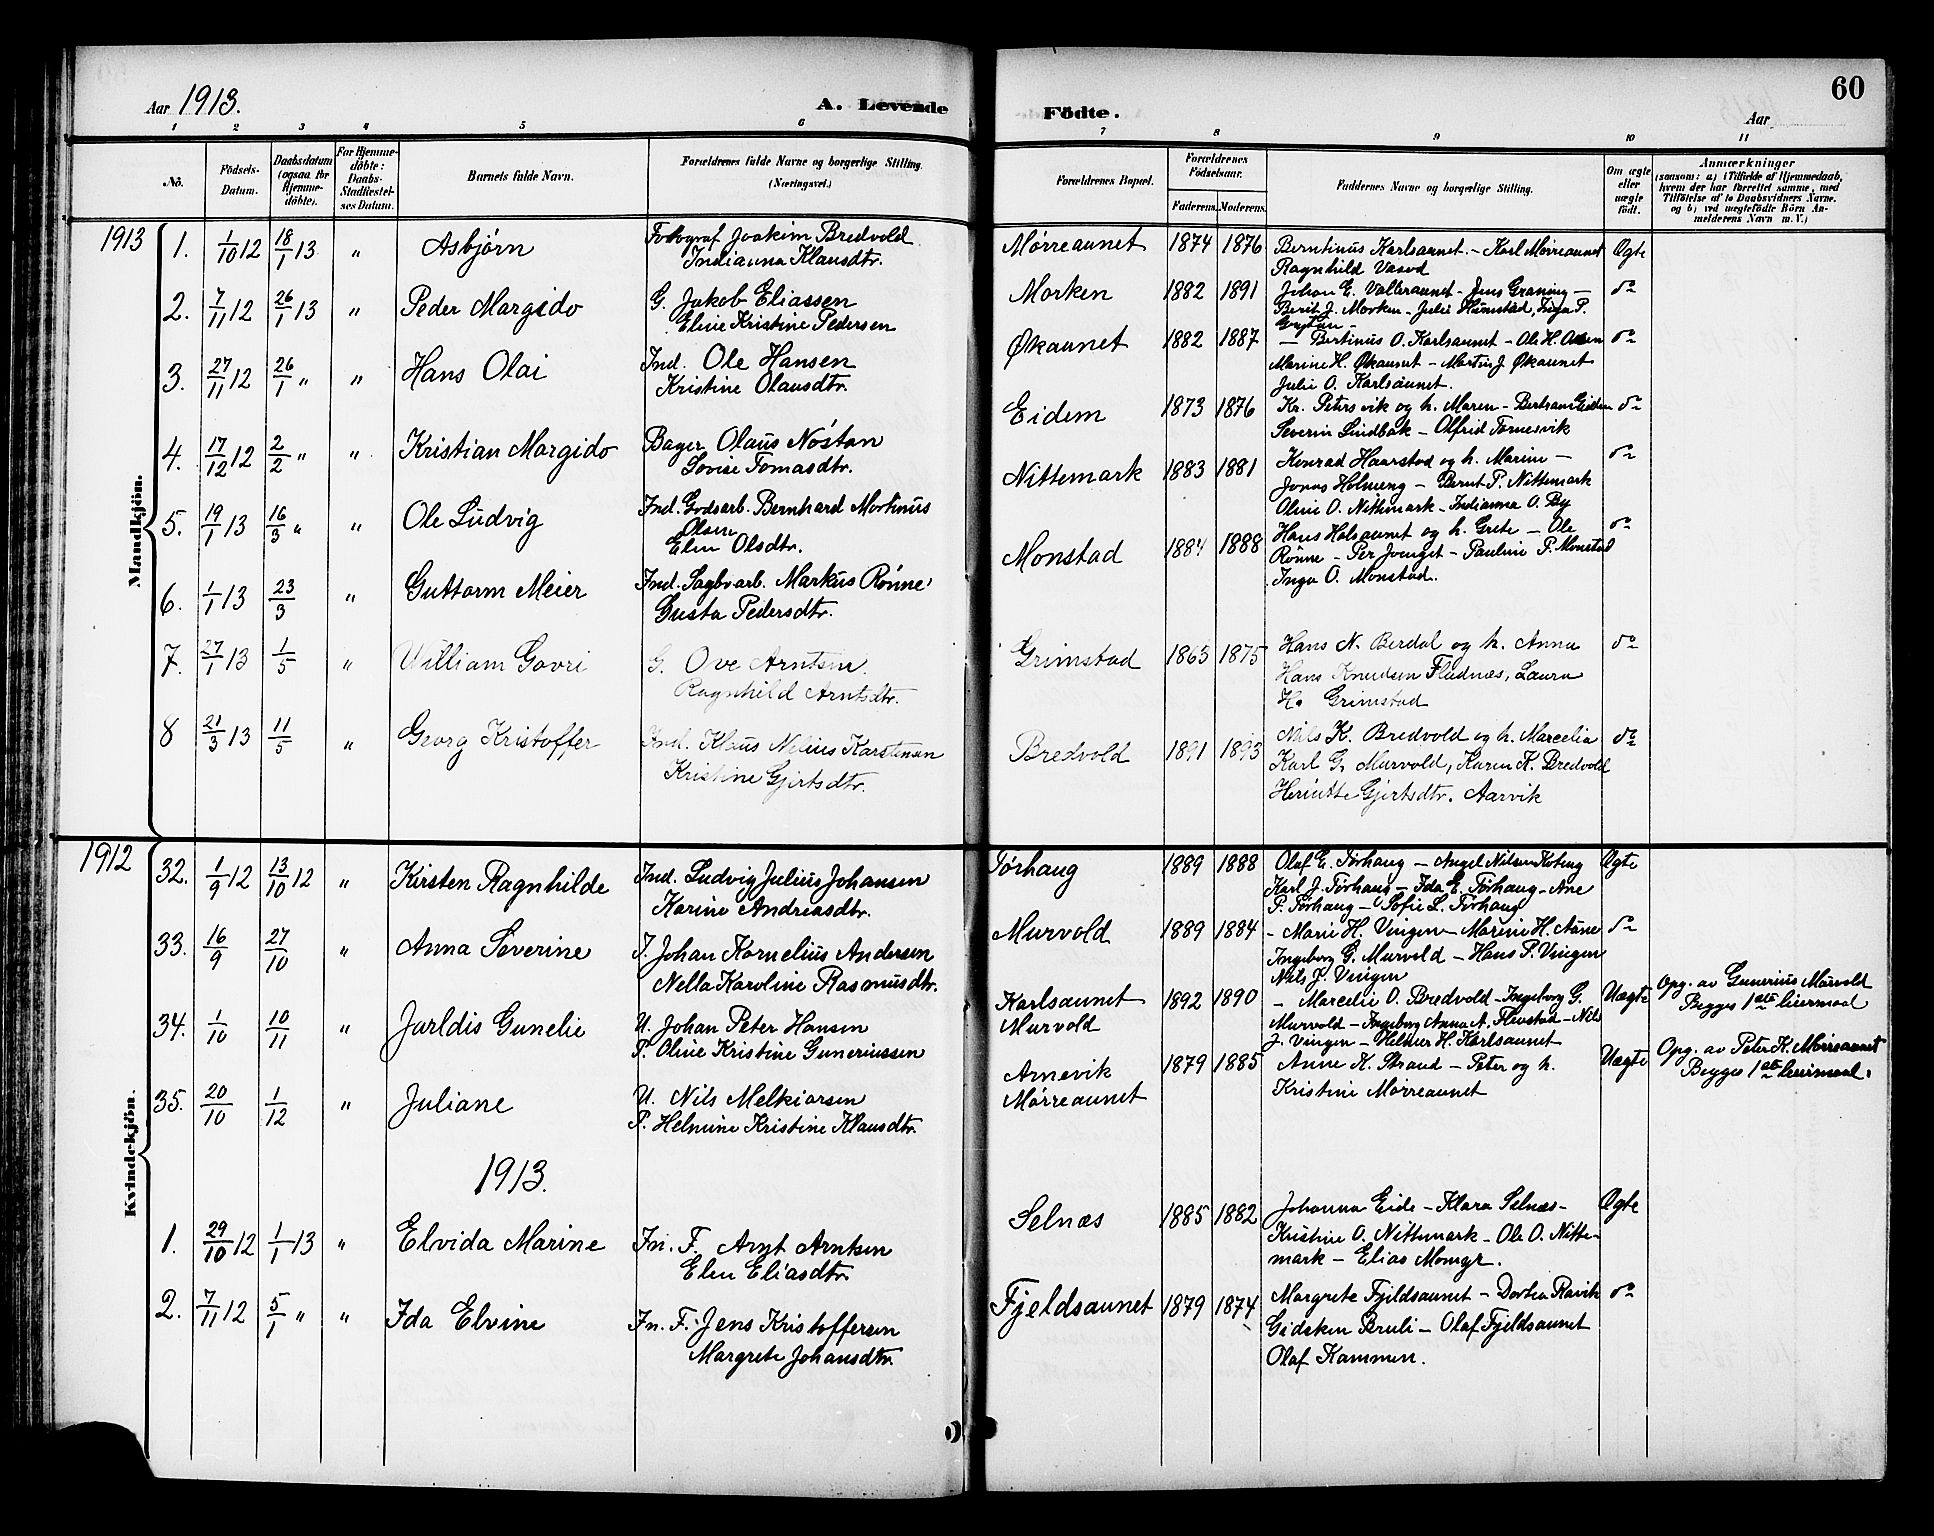 60
Aar 1913.
A. Levende
Födte.
Aar
1 2 3 4 5 6 7 8 9 10 11
No.
Födsels-Datum.
Daabsdatum (ogsaa for Hjemme-döbte).
For Hjemme-döbte: Daabs-Stadfæstel-ses Datum.
Barnets fulde Navn.
Forældrenes fulde Navne og borgerlige Stilling. (Næringsvei.)
Forældrenes Bopæl.
Forældrenes Födselsaar.
Faderens. Moderens.
Faddernes Navne og borgerlige Stilling.
Om ægte eller uægte födt.
Anmærkninger
(saasom: a) i Tilfælde af Hjemmedaab, hvem der har forrettet samme, med Tilföielse af to Daabsvidners Navne. og b) ved uægtefödte Börn An-melderens Navn m. V.)
Mandkjön.
1913 1. 1/10 12 18/1 13 " Asbjørn Fotograf Joakim Bredvold Mørreaunet 1874 1876 Berntinus Karlsaunet. - Karl Mørreaunet Ægte
Indianna Klausdtr. Ragnhild
2. 7/11 12 26/1 13 " Peder Margido G. Jakob Eliassen Morken 1882 1891 Johan E. Valleraunet - Jens Graning - do
Eline Kristine Pedersen Berit J. Morken - Julie Humstad, Inga P.
3. 27/11 12 26/1 " " Hans Olai Ind. Ole Hansen Økaunet 1882 1887 - Bertinus O. Karlsaunet - Ole H. Olsen do
Kristine Olausdtr. Marine H. Økaunet - Martin J. Økaunet
Julie O. Karlsaunet.
4. 17/12 12 2/2 " " Kristian Margido Bager Olaus Nøstan Eidem 1873 1876 Kr. Petersvik og h. Maren - Bertram Eidem do
Lovise Tomasdtr. Severin Lindbak - Olfrid Tornesvik
5. 19/1 13 16/3 " " Ole Ludvig Ind. Godsarb. Bernhard Mortinus Nittemark 1883 1881 Konrad Haarstad og h. Marine - do
Olsen Jonas Holmeng - Bernt P. Nittemark
Elen Olsdtr. Oline O. Nittemark - Indianna O. By
6. 1/1 13 23/3 " Guttorm Meier Ind. Sagbr.arb. Markus Rønne Monstad 1884 1888 Hans Halsaunet og h. Grete - Ole do
Gusta Pedersdtr. Rönne - Per - Pauline P. Monstad
Inga O. Monstad.
7. 27/1 13 1/5 " William Govri G. Ove Arntsen Grimstad 1863 1875 Hans N. Berdal og h. Anna do
Ragnhild Arntsdtr. Hans Knudsen Fludnæs, Laura
H. Grimstad
8 21/3 13 11/5 " Georg Kristoffer Ind. Klaus Nelius Karstensen Bredvold 1891 1893 Nils K. Bredvold og h. Marcelia do
Kristine Gjertsdtr. Karl G. Murvold, Karen K. Bredvold
Henitte Gjertsdtr. Aarvik
Kvindekjön.
1912 32. 1/9 12 13/10 12 " Kirsten Ragnhilde Ind. Ludvig Julius Johansen Tørhaug 1889 1888 Olaf E. Tørhaug - Angel Nilsen Koteng Ægte
Karine Andreasdtr. Karl J. Tørhaug - Ida E. Tørhaug - Ane
P. Tørhaug - Sofie L. Tørhaug
33. 16/9 27/10 " Anna Severine I. Johan Kornelius Andersen Murvold 1889 1884 - Marie H. Vingen - Marine H. Aune do
Nella Karoline Rasmusdtr. Ingeborg G. Murvold - Hans P. Vingen
Nils J. Vingen
34. 1/10 10/11 " Jarldis Gunelie U. Johan Peter Hansen Karlsaunet 1892 1890 - Marcelie O. Bredvold - Ingeborg G. Uægte Opg. av Gunerius Murvold
P. Oline Kristine Guneriussen Murvold Murvold - Ingeborg Anna A. Flevstad - Nils Begges 1ste leiermaal
J. Vingen - Helmer H. Karlsaunet
35. 20/10 1/12 " Juliane U. Nils Melkiorsen Arnevik 1879 1885 Anne K. Strand - Peter og h. Uægte Opg. av Peter K. Mørreaunet
P. Helmine Kristine Klausdtr. Mørreaunet Kristine Mørreaunet Begges 1ste leiermaal.
1913.
1. 29/10 12 1/1 13 " Elvida Marine In. F. Arnt Arntsen Selnæs 1885 1882 Johanna Eide - Klara Selnæs - Ægte
Elen Eliasdtr. Kristine O. Nittemark - Ole O. Nitte-
mark - Elias
2. 7/11 12 5/1 " " Ida Elvine In. F. Jens Kristoffersen Fjeldsaunet 1879 1874 Margrete Fjeldsaunet - Dortea Ravik do
Margrete Johansdtr. Gidsken Bruli - Olaf Fjeldsaunet
Olaf Kammen.